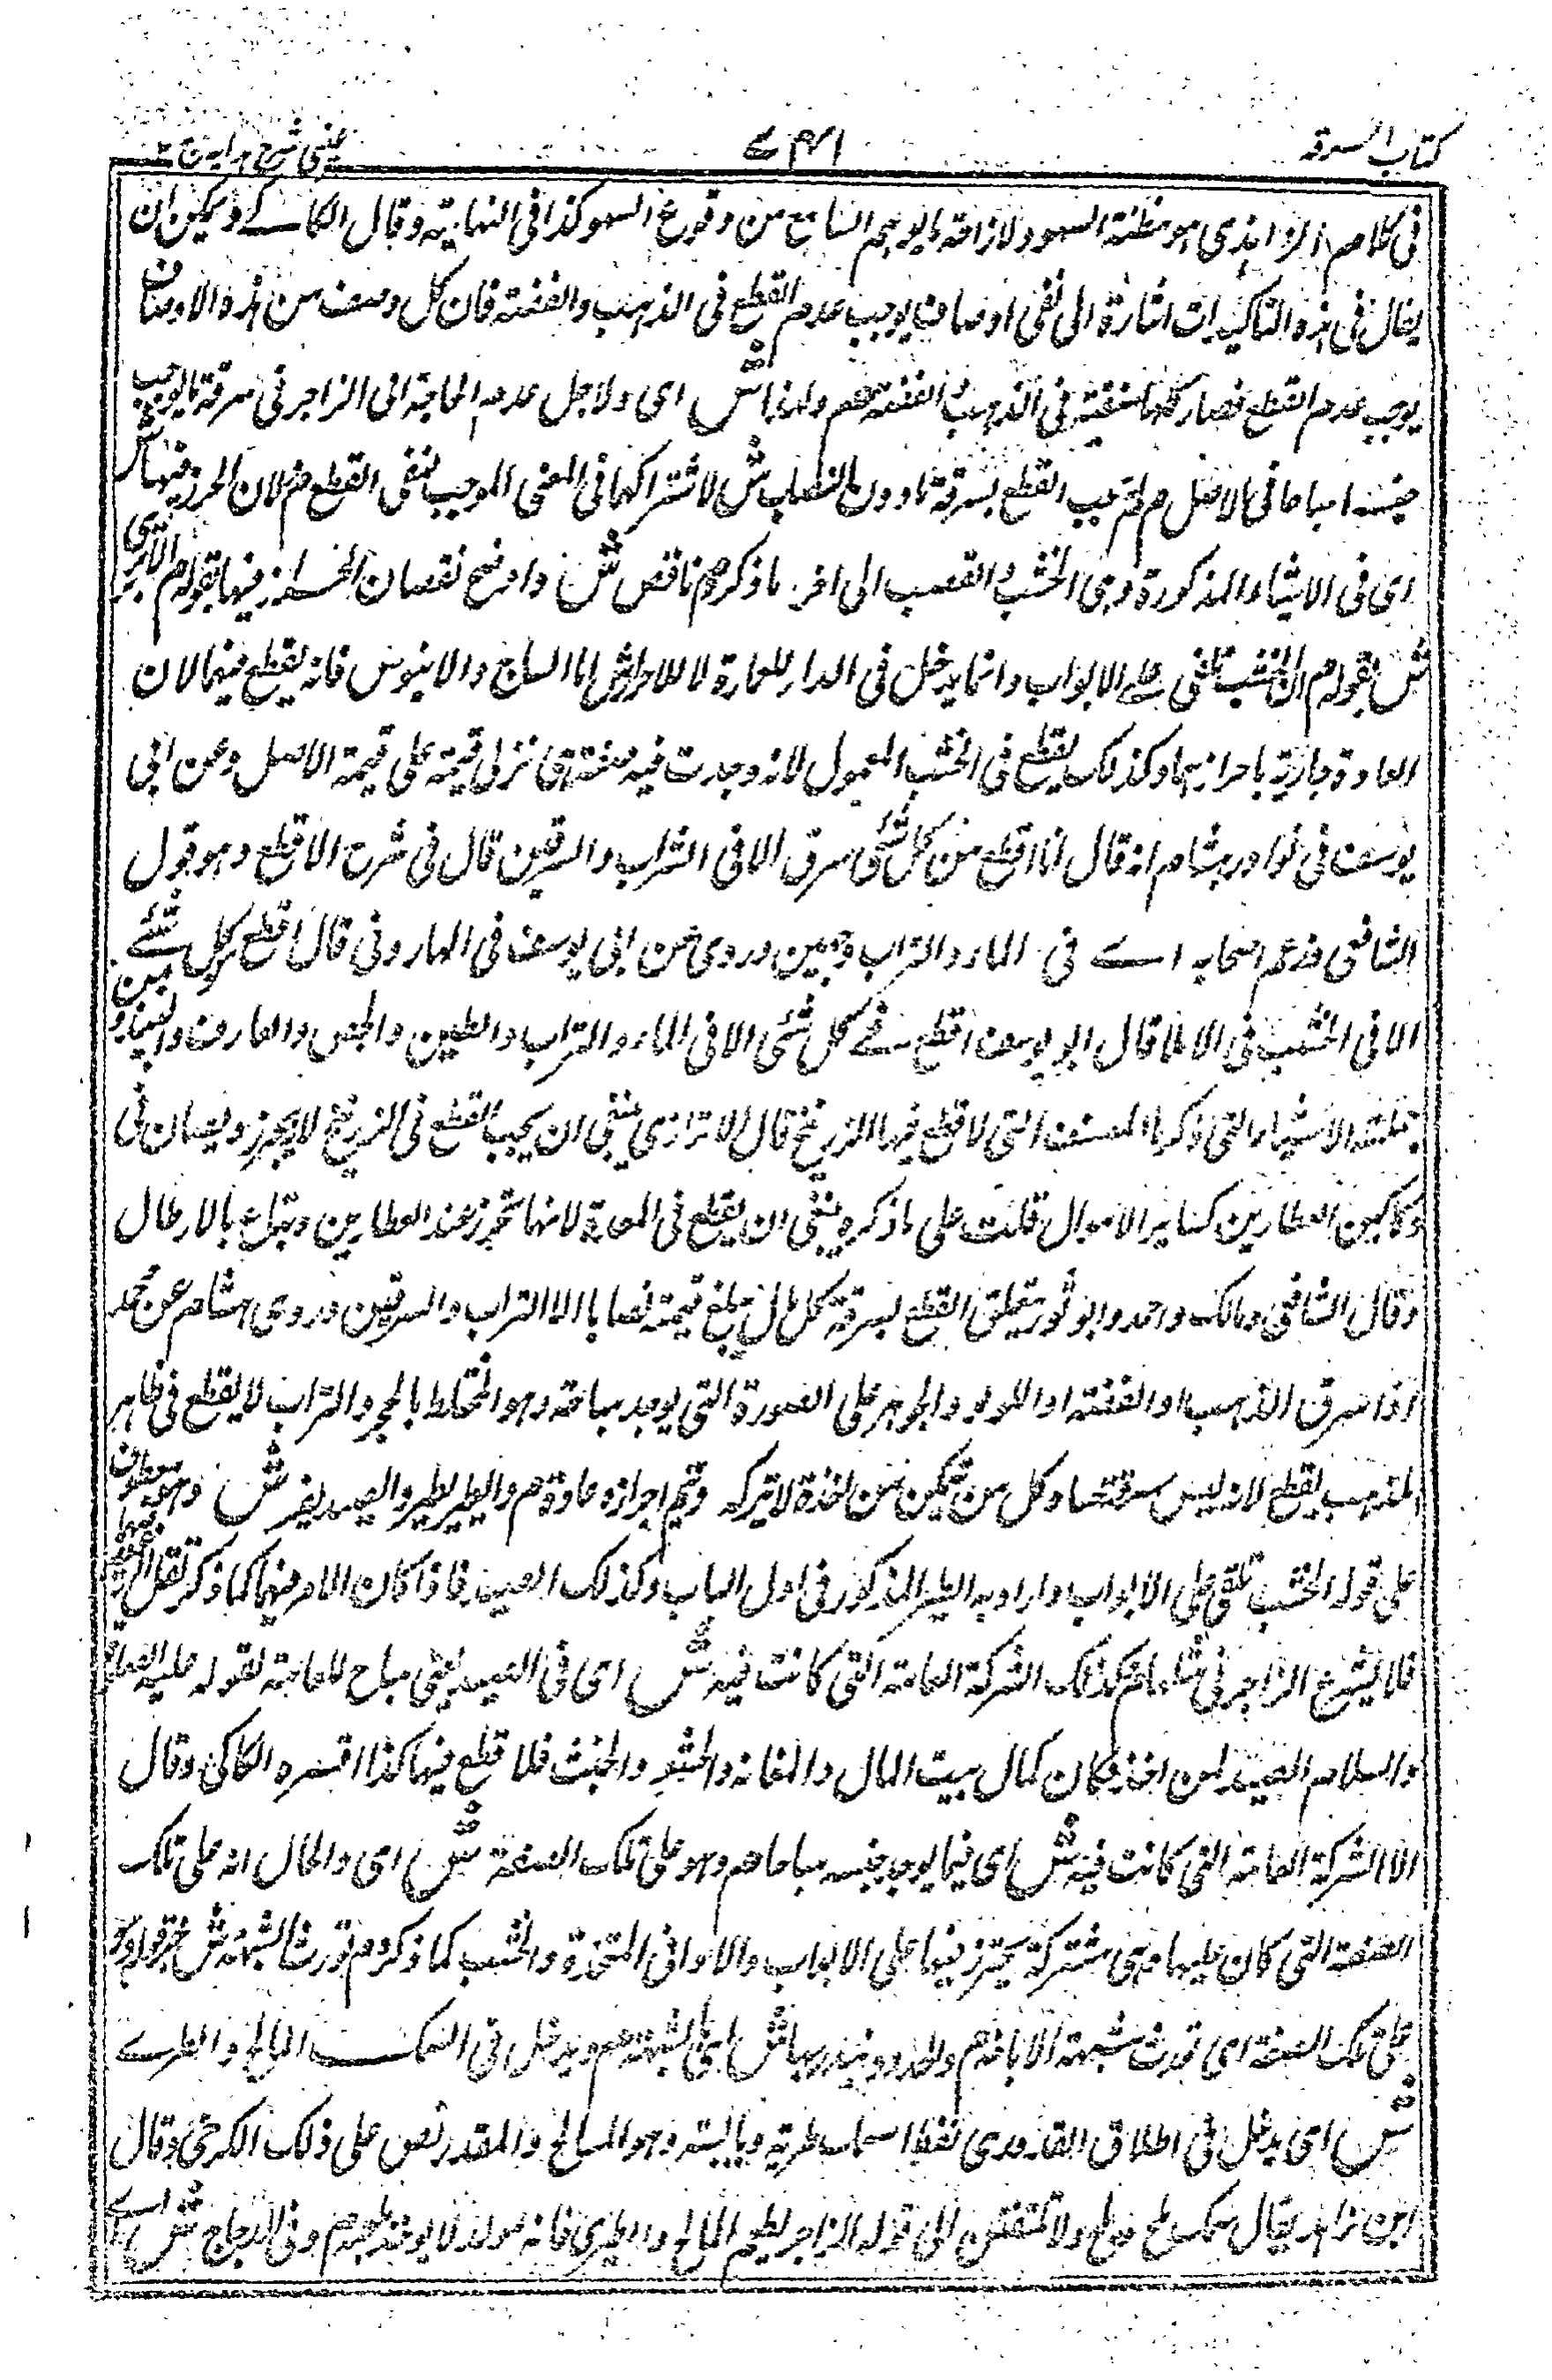 كتاب السرقة
عينى شرح هدايه ج ٢
فى كلام الذى هو مظنة السهو ولازاحة ما يوهم السامع من وقوع السهو كذا فى النهاية وقال الكاكے ويمكن ان
يقال فى هذه التاكيدات اشارة الى نفى اوصاف يوجب عدم القطع فى الذهب والفضة فان كل وصف من هذه الاوصاف
يوجب عدم القطع فصار كلها منتفية فى الذهب والفضة م ولهذا ش اى ولاجل عدم الحاجة الى الزاجر فى سرقة ما يوجد
جنسه مباحا فى الاصل م لم يجب القطع بسرقة ما دون النصاب ش لاشتراكهما فى المعنى الموجب لنفى القطع م ولان الحرز فيها ش
اى فى الاشياء المذكورة وهى الخشب والقصب الى اخر ما ذكره م ناقص ش واوضح نقصان الحرز فيها بقوله م الا يرى
ش بقوله م ان الخشب تلقى علے الابواب وانما يدخل فى الدار للعمارة لا للاحراز ش اما الساج والابنوس فانه يقطع فيهما لان
العادة جارية باحرازهما وكذلك يقطع فى الخشب المعمول لانه وجدت فيه صنعة قيمة على قيمة الاصل وعن ابى
يوسف فى نوادر هشام انه قال انا اقطع من كل شئ سرق الا فى التراب والسرقين قال فى شرح الاقطع وهو قول
الشافعى وزعم اصحابه اے فى الماء والتراب وجهين وروى عن ابى يوسف فى الهارونى قال اقطع كل شئے
الا فى الخشب فى الاملا قال ابو يوسف اقطع فے كل شئى الا فى الماء والتراب والطين والجص والمعازف والنبيذ و
الاشياء التى ذكرها المصنف التى لا قطع فيها الزرنيخ قال الاترازى ينبغى ان يجب القطع فى الزرنيخ لانه يحرز ويصان فى
دكاكين العطارين كسائر الاموال قلت على ما ذكره ينبغى ان يقطع فى المغرة لانها تحرز عند العطارين وتباع بالارطال
وقال الشافعى ومالك واحمد وابو ثور يتعلق القطع بسرقة كل مال يبلغ قيمته نصابا الا التراب والسرقين وروى هشام عن محمد
اذا سرق الذهب او الفضة او اللولو والجوهر على الصورة التى يوجد مباحة وهو المختلط بالحجر والتراب لا يقطع فى ظاهر
المذهب يقطع لانه ليس وكل من يمكن من اخذه لا يتركه ويتم احرازه عادة م والطير يطير والصيد يفر ش وهو معطوف
على قوله الخشب تلقى على الابواب واراد به الطير المذكور فى اول الباب وكذلك الصيد فاذا كان الامر فيهما كما ذكر تقل الرغبة فيهما
فلا يشرع الزاجر فى مثله م وكذلك الشركة العامة التى كانت فيه ش اى فى الصيد يعنى مباح للعامة لقوله عليه الصلوة
والسلام الصيد لمن اخذ فكان كمال بيت المال والمغانم والحشو والخبث فلا قطع فيها كذا فسره الكاكى وقال
الا الشركة العامة التى كانت فيه ش اى فيما يوجد جنسه مباحا م وهو على تلك الصفة ش اى والحال انه على تلك
الصفة التى كان عليها وهى مشتركة يحترز فيها على الابواب والاوانى المتخذة والخشب كما ذكر م تورث الشبهة ش
على تلك الصفة اى تورث شبهة الاباحة م والحدود يندرى بها ش اى بالشبهة م ويدخل فى السمك المالح والطرے
ش اى يدخل فى اطلاق القدورى لفظ السمك طريه ويابسه وهو المالح والمقدد نص على ذلك الكرخى وقال
ابن يقال سمك ملح ومملوح ولا تلتفتن الى قول الراجز يطعمها المالح والطرى فانه مولد لا يوخذ بلغته م وفى الدجاج ش اے